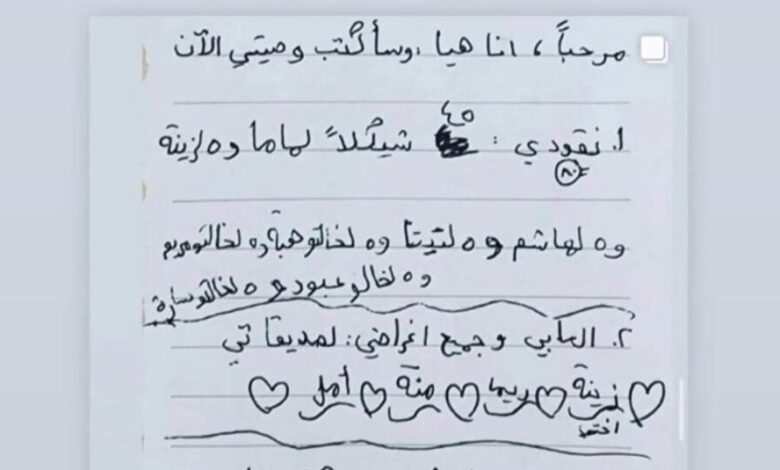 مرحباً، انا هيا، وسأكتب وصيتي الآن
١. نقودي: ٤٥ شيكلاً لماما و٥ لزينة
٨٠
و٥ لهاشم و٥ لتيتا و٥ لخالتو هبة و٥ لخالتو مريم
و٥ لخالو عبود و٥ لخالتو سارة
٢. العابي وجميع اغراضي: لصديقاتي
زينة ريما منة أمل
اختي